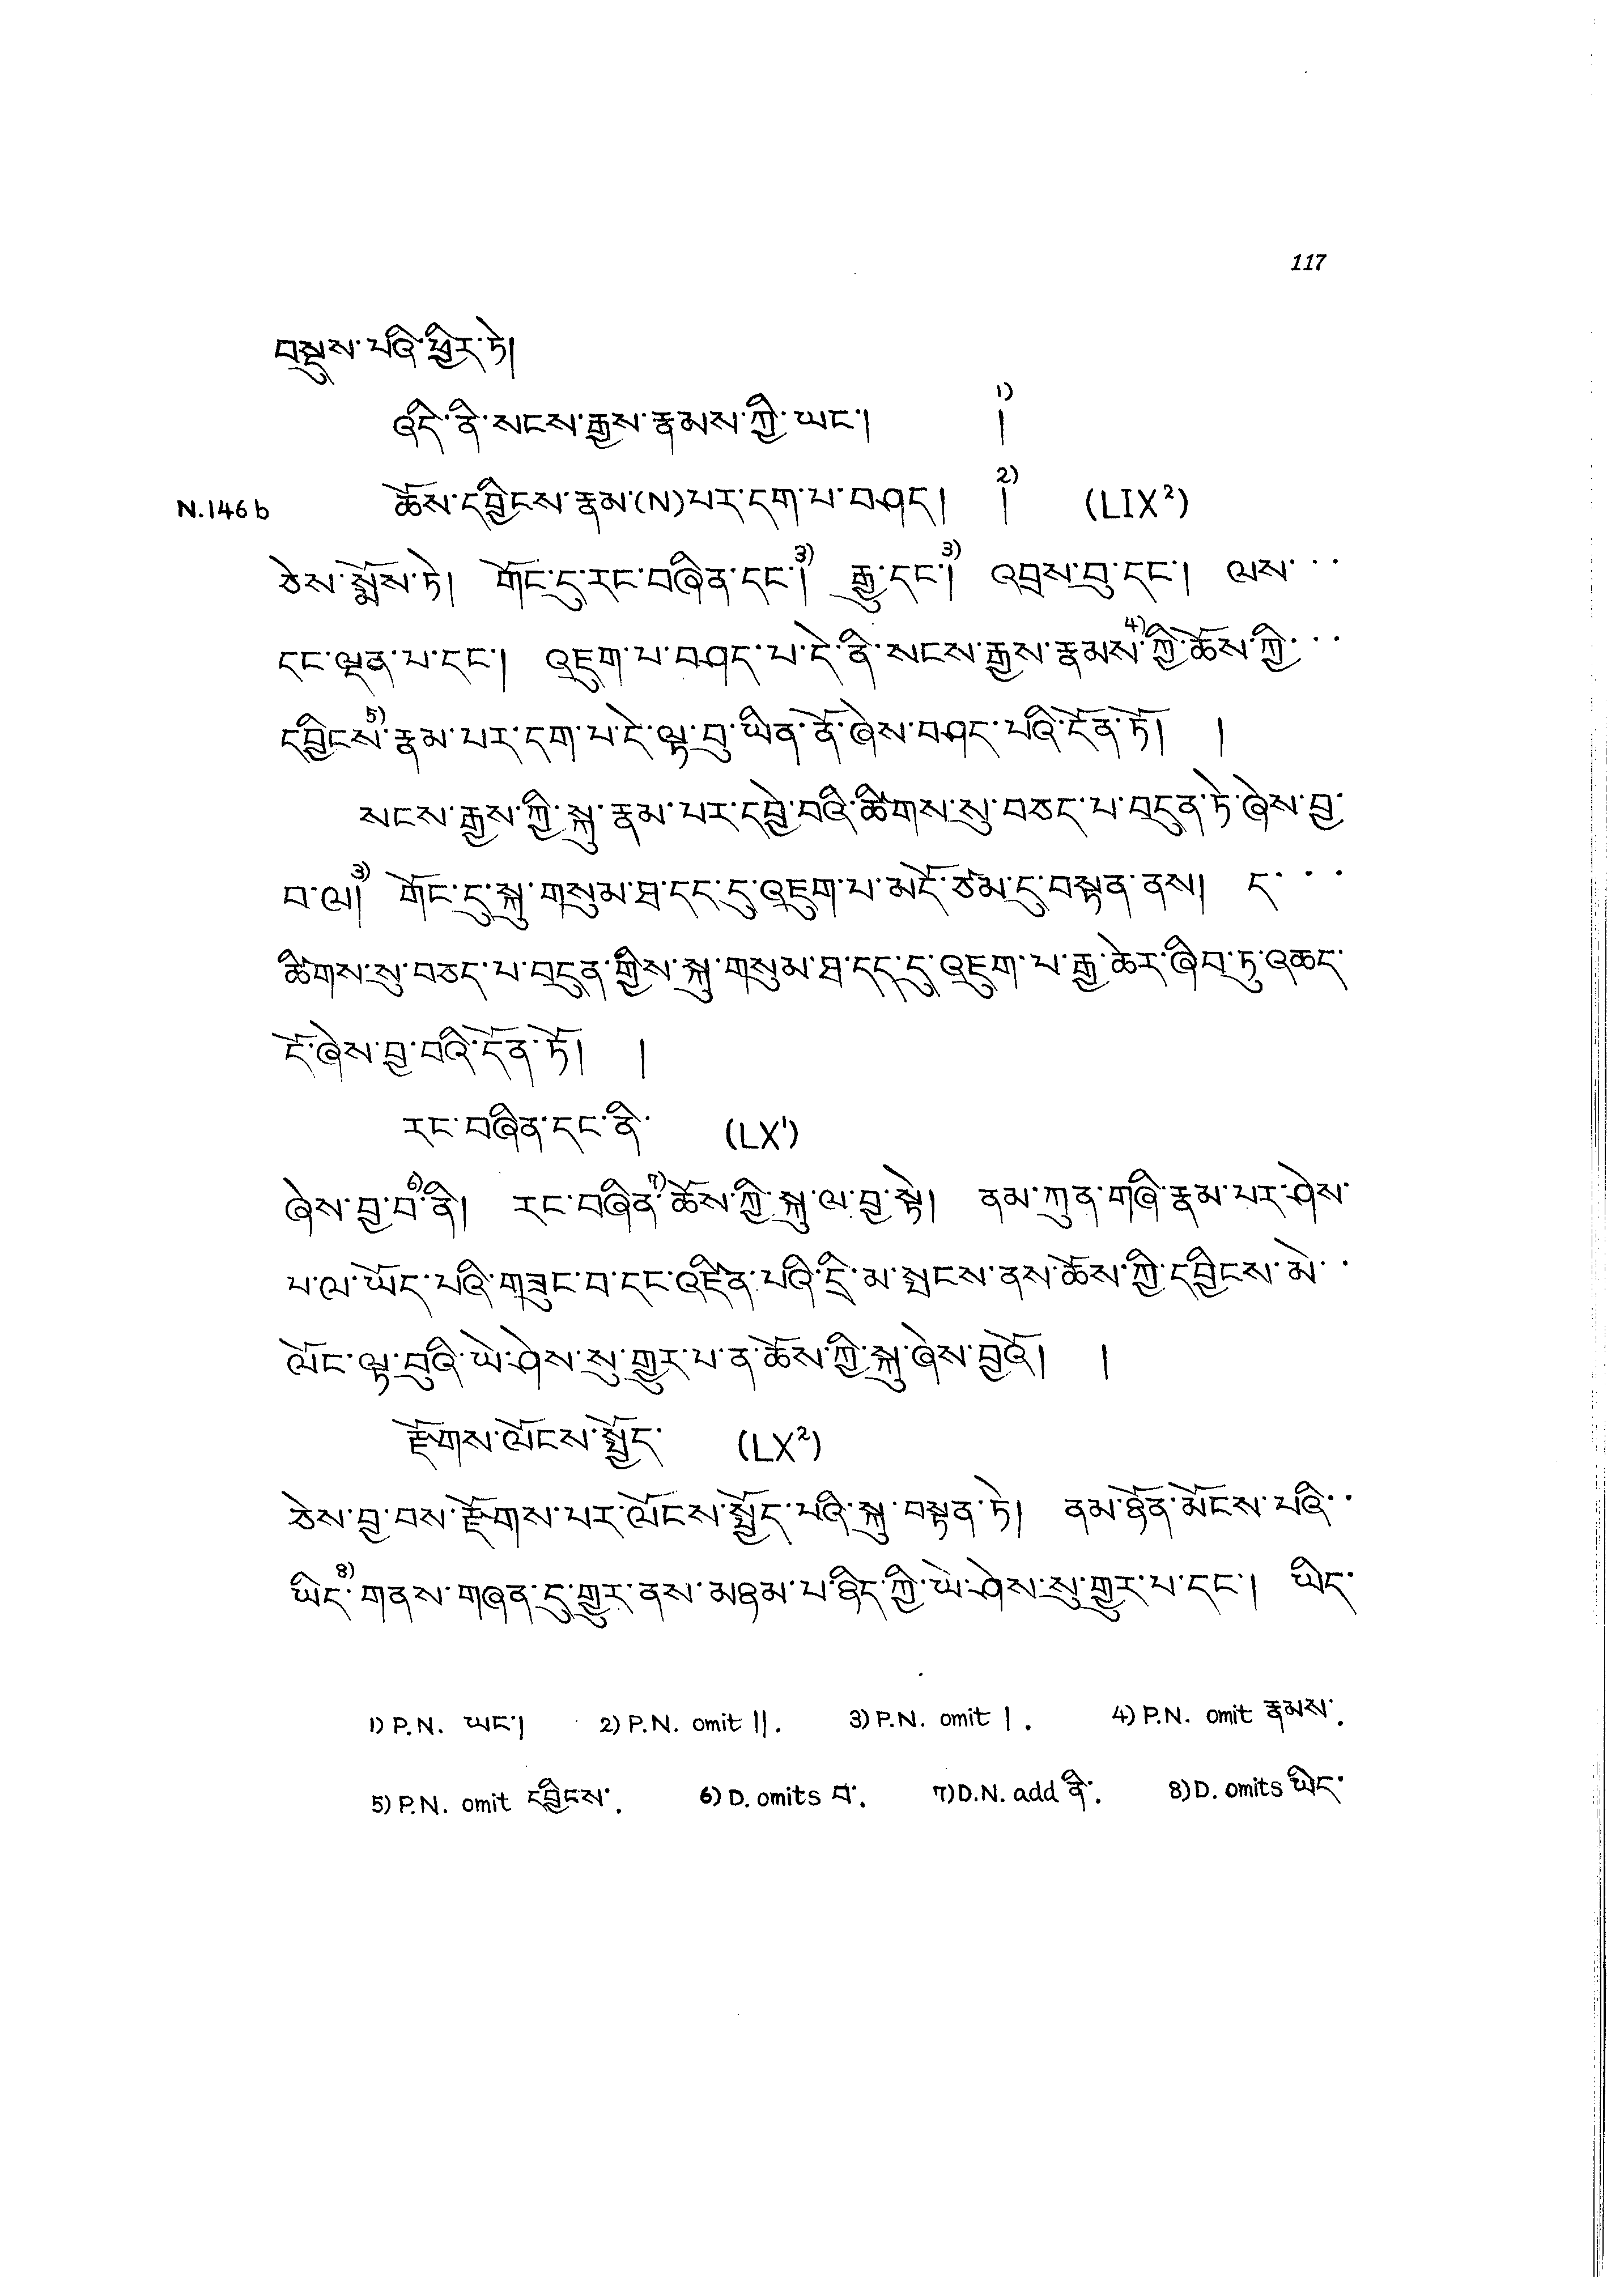 117
བསྡུས་པའི་ཕྱིར་ཏེ།
འདི་ནི་སངས་རྒྱས་རྣམས་ཀྱི་ཡང་། 1)།
N.146b ཆོས་དབྱིངས་རྣམ་(N)པར་དག་པ་བཤད། 2)། (LIX²)
ཅེས་སྨོས་ཏེ། གོང་དུ་རང་བཞིན་དང་།3) རྒྱུ་དང་།3) འབྲས་བུ་དང་། ལས་···
དང་ལྡན་པ་དང་། འཇུག་པ་བཤད་པ་དེ་ནི་སངས་རྒྱས་རྣམས་4)ཀྱི་ཆོས་ཀྱི་···
དབྱིངས་5)རྣམ་པར་དག་པ་དེ་ལྟ་བུ་ཡིན་ནོ་ཞེས་བཤད་པའི་དོན་ཏོ། །
སངས་རྒྱས་ཀྱི་སྐུ་རྣམ་པར་དབྱེ་བའི་ཚིགས་སུ་བཅད་པ་བདུན་ཏེ་ཞེས་བྱ་
བ་ལ།3) གོང་དུ་སྐུ་གསུམ་ཐ་དད་དུ་འཇུག་པ་མདོ་ཙམ་དུ་བསྟན་ནས། ད་···
ཚིགས་སུ་བཅད་པ་བདུན་གྱིས་སྐུ་གསུམ་ཐ་དད་དུ་འཇུག་པ་རྒྱ་ཆེར་ཞིབ་ཏུ་འཆད་
དོ་ཞེས་བྱ་བའི་དོན་ཏོ། །
རང་བཞིན་དང་ནི་ (LX¹)
ཞེས་བྱ་བ་6)ནི། རང་བཞིན་7)ཆོས་ཀྱི་སྐུ་ལ་བྱ་སྟེ། ནམ་ཀུན་གཞི་རྣམ་པར་ཤེས་
པ་ལ་ཡོད་པའི་གཟུང་བ་དང་འཛིན་པའི་དྲི་མ་སྤངས་ནས་ཆོས་ཀྱི་དབྱིངས་མེ་··
ལོང་ལྟ་བུའི་ཡེ་ཤེས་སུ་གྱུར་པ་ན་ཆོས་ཀྱི་སྐུ་ཞེས་བྱའོ། །
རྫོགས་ལོངས་སྤྱོད་ (LX²)
ཅེས་བྱ་བས་རྫོགས་པར་ལོངས་སྤྱོད་པའི་སྐུ་བསྟན་ཏེ། ནམ་ཉོན་མོངས་པའི་··
ཡིད་8)གནས་གཞན་དུ་གྱུར་ནས་མཉམ་པ་ཉིད་ཀྱི་ཡེ་ཤེས་སུ་གྱུར་པ་དང་། ཡིད་
1) P.N. ཡང་། 2) P.N. omit ||. 3) P.N. omit |. 4) P.N. omit རྣམས་.
5) P.N. omit དབྱིངས་. 6) D. omits བ་. 7) D.N. add ནི་. 8) D. omits ཡིད་